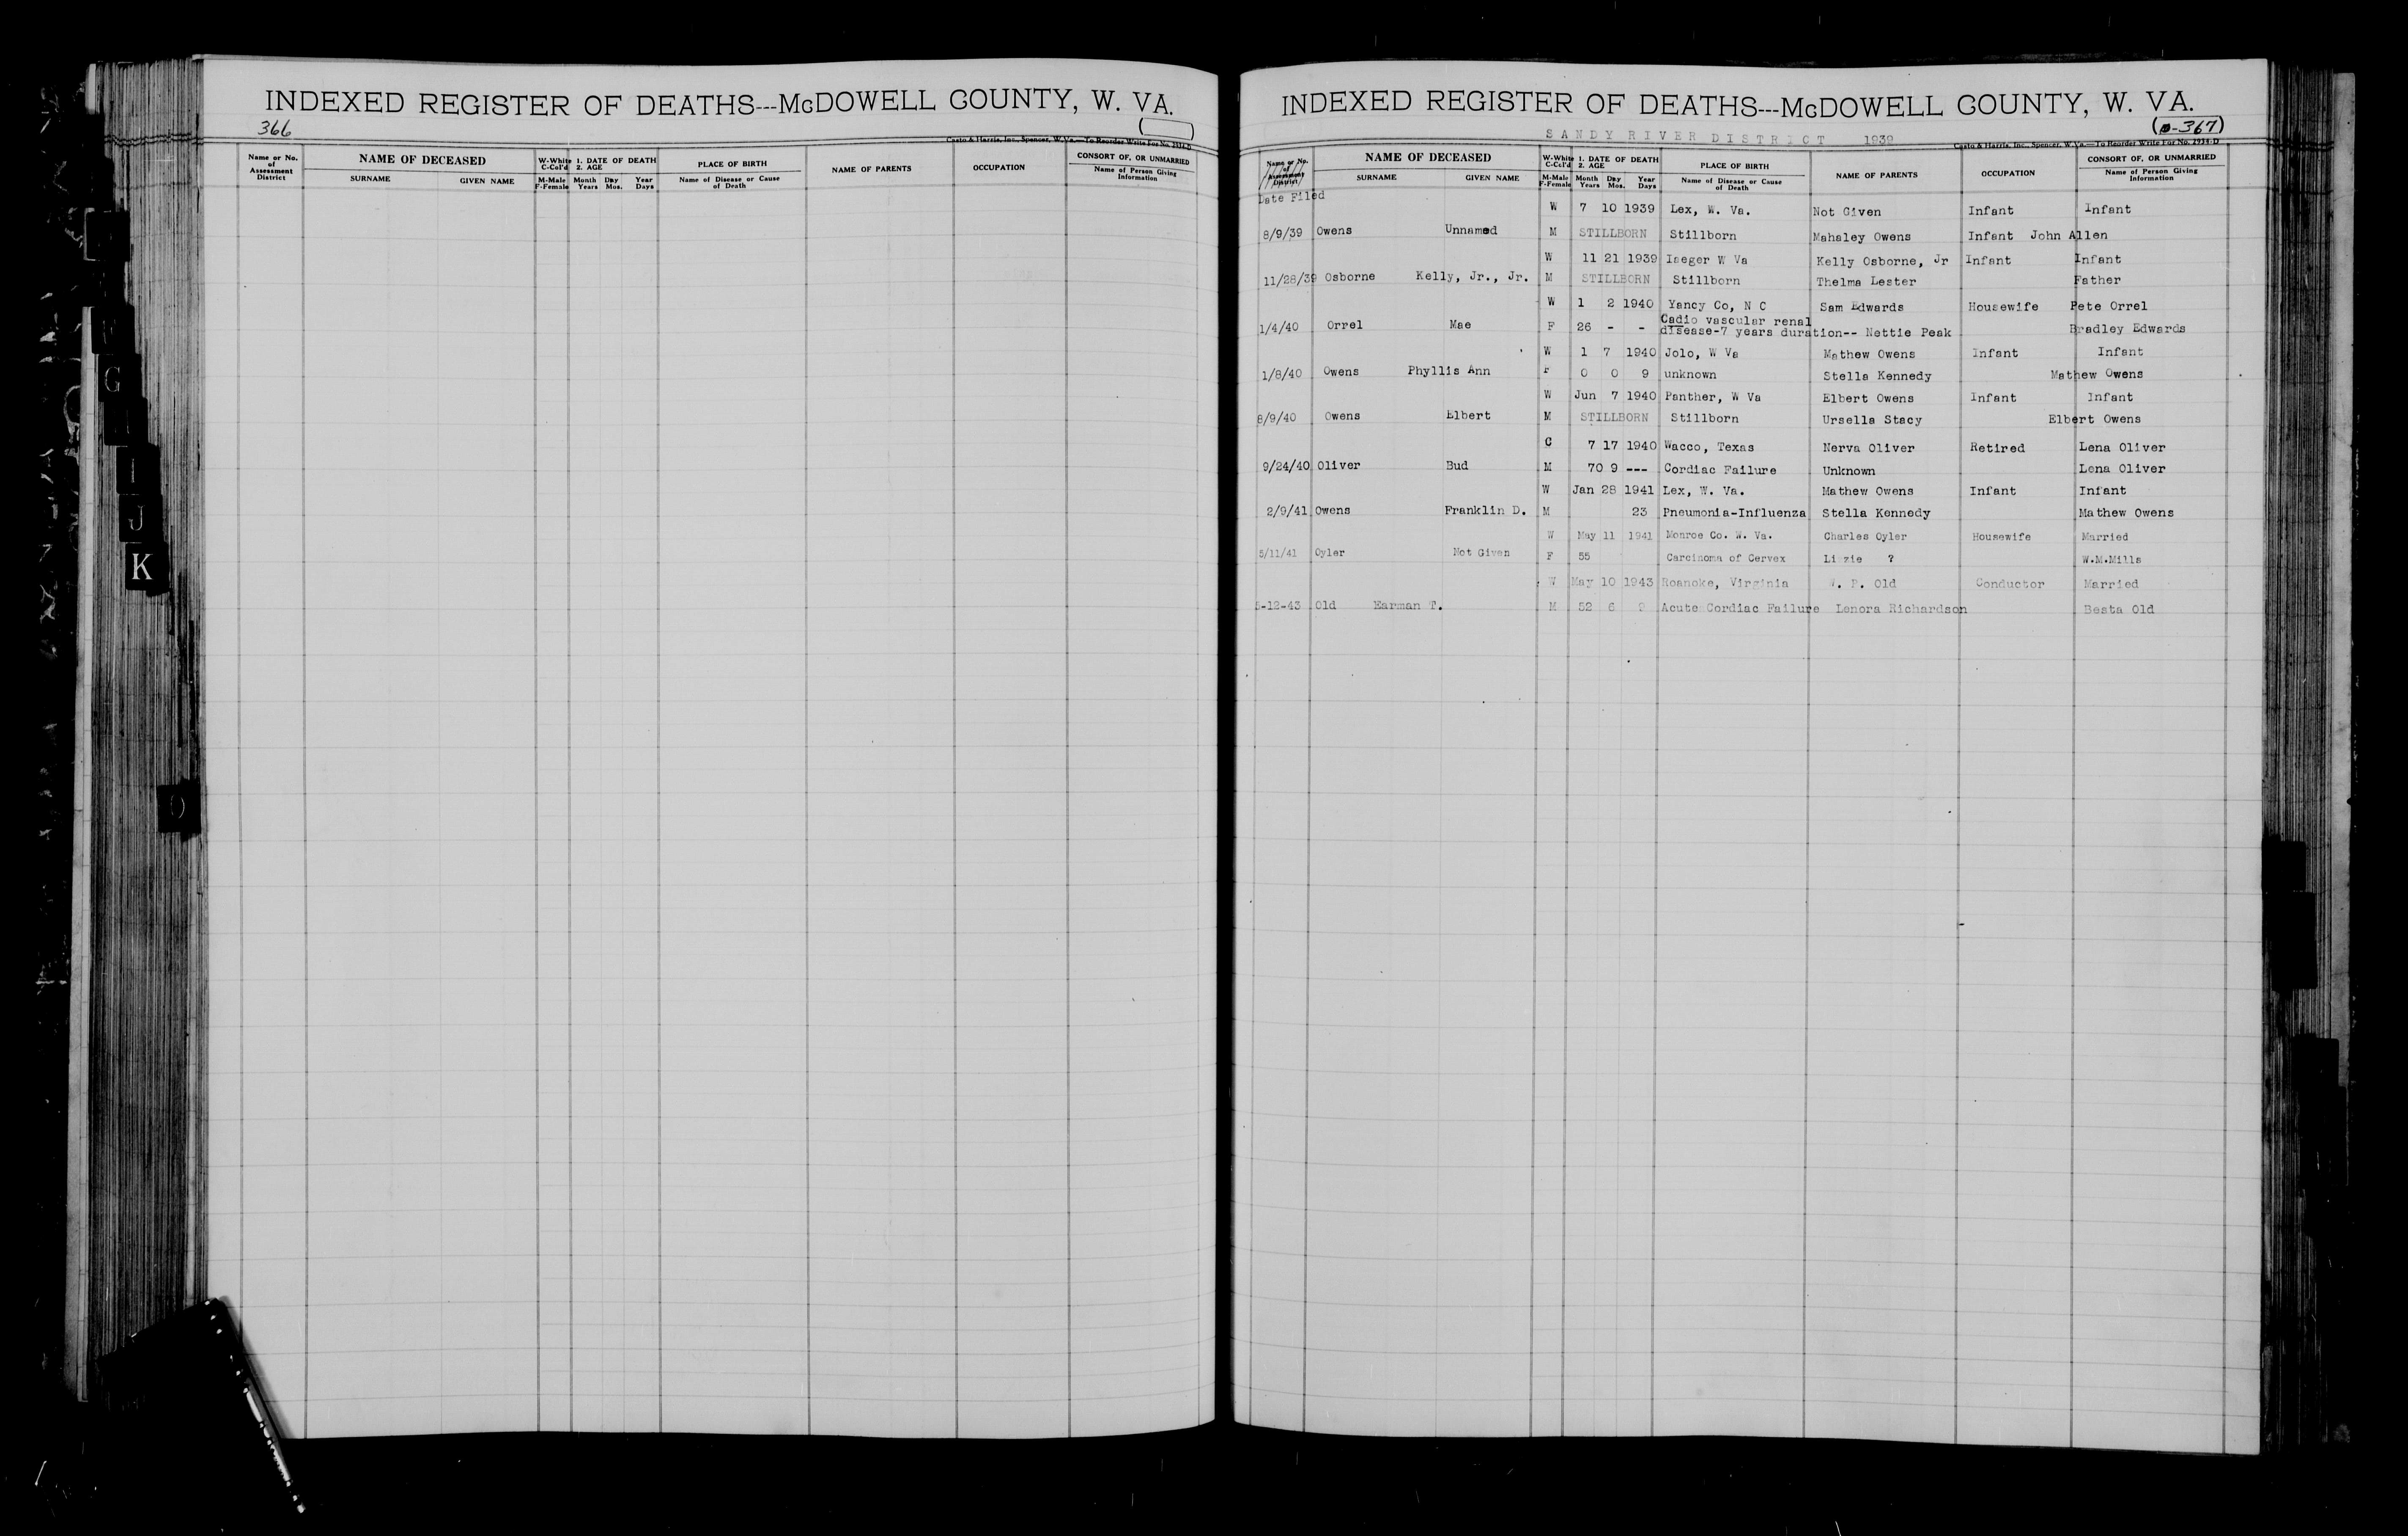 INDEXED REGISTER OF DEATHS---McDOWELL COUNTY, W. VA.
366
Casto & Harris, Inc., Spencer, W. Va.—To Reorder Write For No. 2934-D
Name or No. of Assessment District
NAME OF DECEASED
SURNAME GIVEN NAME
W-White C-Col'd
M-Male F-Female
1. DATE OF DEATH
2. AGE
Month Day Year
Years Mos. Days
PLACE OF BIRTH
Name of Disease or Cause of Death
NAME OF PARENTS
OCCUPATION
CONSORT OF, OR UNMARRIED
Name of Person Giving Information
INDEXED REGISTER OF DEATHS---McDOWELL COUNTY, W. VA.
SANDY RIVER DISTRICT 1939
(O-367)
Casto & Harris, Inc., Spencer, W. Va.—To Reorder Write For No. 2934-D
Name or No. of Assessment District
NAME OF DECEASED
SURNAME GIVEN NAME
W-White C-Col'd
M-Male F-Female
1. DATE OF DEATH
2. AGE
Month Day Year
Years Mos. Days
PLACE OF BIRTH
Name of Disease or Cause of Death
NAME OF PARENTS
OCCUPATION
CONSORT OF, OR UNMARRIED
Name of Person Giving Information
Date Filed
W 7 10 1939 Lex, W. Va. Not Given Infant Infant
8/9/39 Owens Unnamed M STILLBORN Stillborn Mahaley Owens Infant John Allen
W 11 21 1939 Iaeger W Va Kelly Osborne, Jr Infant Infant
11/28/39 Osborne Kelly, Jr., Jr. M STILLBORN Stillborn Thelma Lester Father
W 1 2 1940 Yancy Co, N C Sam Edwards Housewife Pete Orrel
1/4/40 Orrel Mae F 26 - - Cadio vascular renal
disease-7 years duration-- Nettie Peak Bradley Edwards
W 1 7 1940 Jolo, W Va Mathew Owens Infant Infant
1/8/40 Owens Phyllis Ann F 0 0 9 unknown Stella Kennedy Mathew Owens
W Jun 7 1940 Panther, W Va Elbert Owens Infant Infant
8/9/40 Owens Elbert M STILLBORN Stillborn Ursella Stacy Elbert Owens
C 7 17 1940 Wacco, Texas Nerva Oliver Retired Lena Oliver
9/24/40 Oliver Bud M 70 9 --- Cordiac Failure Unknown Lena Oliver
W Jan 28 1941 Lex, W. Va. Mathew Owens Infant Infant
2/9/41 Owens Franklin D. M 23 Pneumonia-Influenza Stella Kennedy Mathew Owens
W May 11 1941 Monroe Co. W. Va. Charles Oyler Housewife Married
5/11/41 Oyler Not Given F 55 Carcinoma of Cervex Li zie ? W.M.Mills
W May 10 1943 Roanoke, Virginia W. P. Old Conductor Married
5-12-43 Old Earman T. M 52 6 Acute Cordiac Failure Lenora Richardson Besta Old
G
I
J
K
O